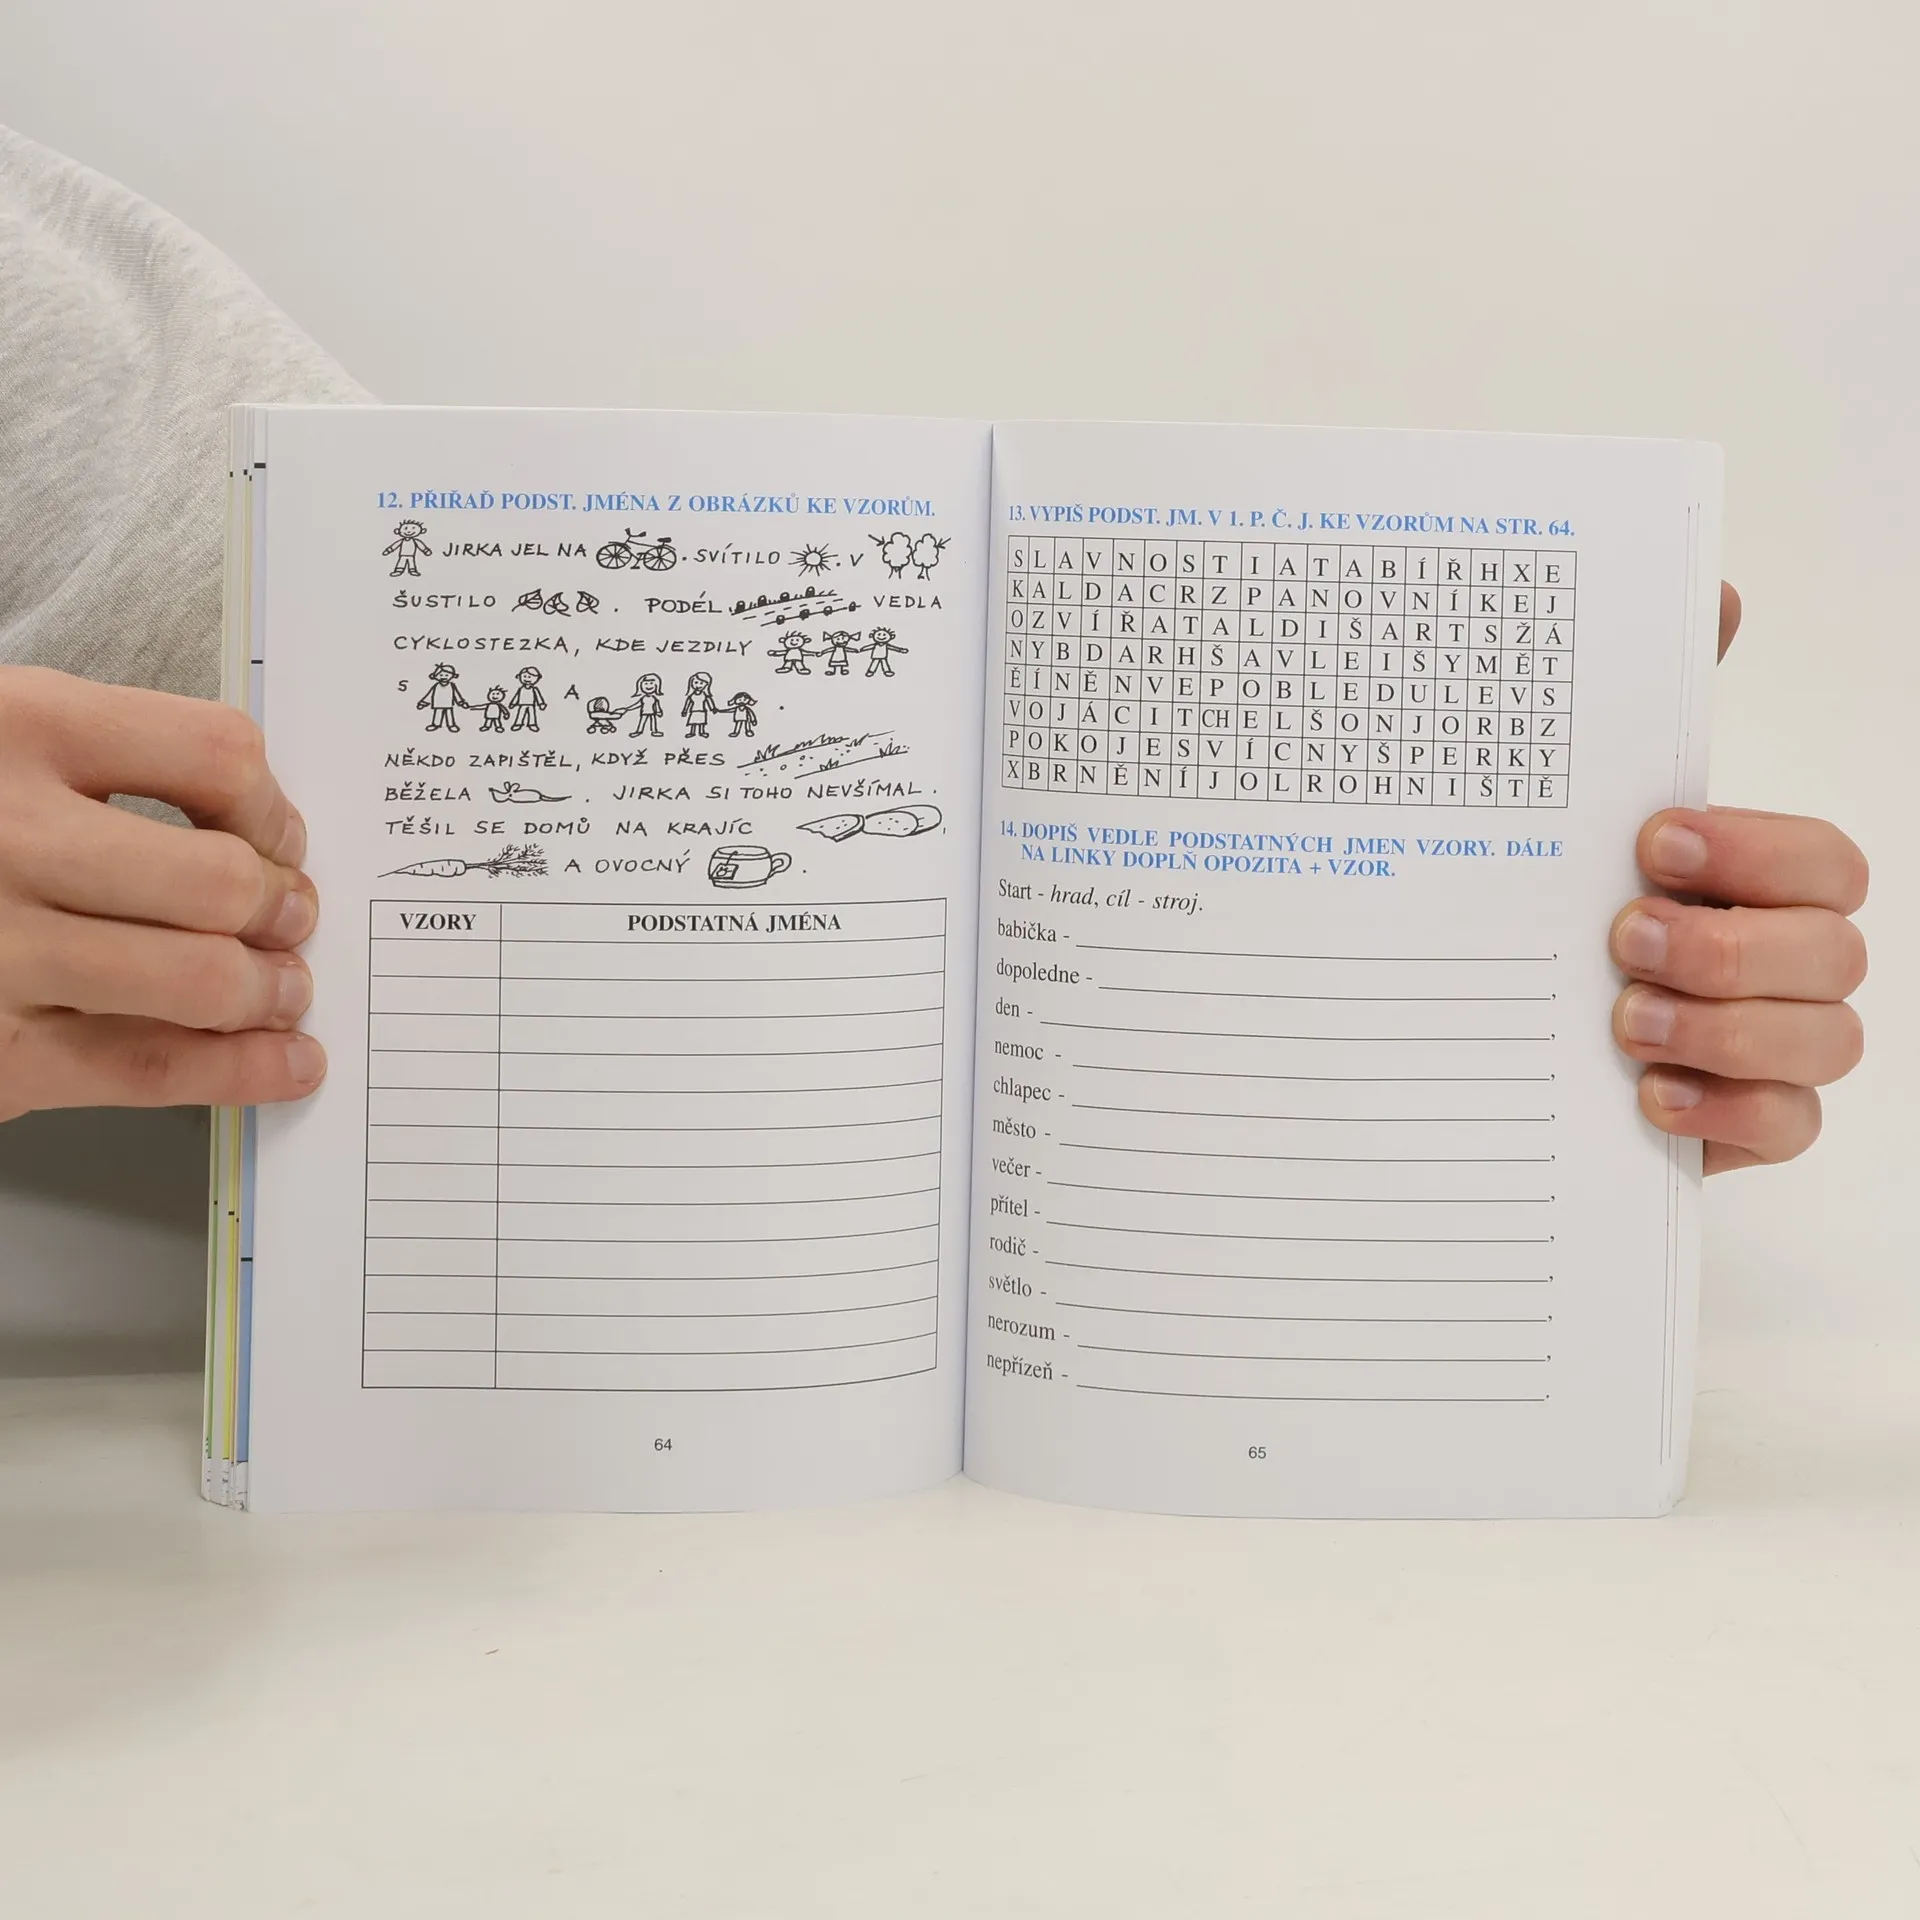 12. PŘIŘAĎ PODST. JMÉNA Z OBRÁZKŮ KE VZORŮM.
JIRKA JEL NA . SVÍTILO . V
ŠUSTILO . PODÉL VEDLA
CYKLOSTEZKA, KDE JEZDILY
S A .
NĚKDO ZAPIŠTĚL, KDYŽ PŘES
BĚŽELA . JIRKA SI TOHO NEVŠÍMAL.
TĚŠIL SE DOMŮ NA KRAJÍC ,
A OVOCNÝ .
VZORY PODSTATNÁ JMÉNA
64
13. VYPIŠ PODST. JM. V 1. P. Č. J. KE VZORŮM NA STR. 64.
S L A V N O S T I A T A B Í Ř H X E
K A L D A C R Z P A N O V N Í K E J
O Z V Í Ř A T A L D I Š A R T S Ž Á
N Y B D A R H Š A V L E I Š Y M Ě T
Ě Í N Ě N V E P O B L E D U L E V S
V O J Á C I T CH E L Š O N J O R B Z
P O K O J E S V Í C N Y Š P E R K Y
X B R N Ě N Í J O L R O H N I Š T Ě
14. DOPIŠ VEDLE PODSTATNÝCH JMEN VZORY. DÁLE
NA LINKY DOPLŇ OPOZITA + VZOR.
Start - hrad, cíl - stroj.
babička - ,
dopoledne - ,
den - ,
nemoc - ,
chlapec - ,
město - ,
večer - ,
přítel - ,
rodič - ,
světlo - ,
nerozum - ,
nepřízeň - .
65